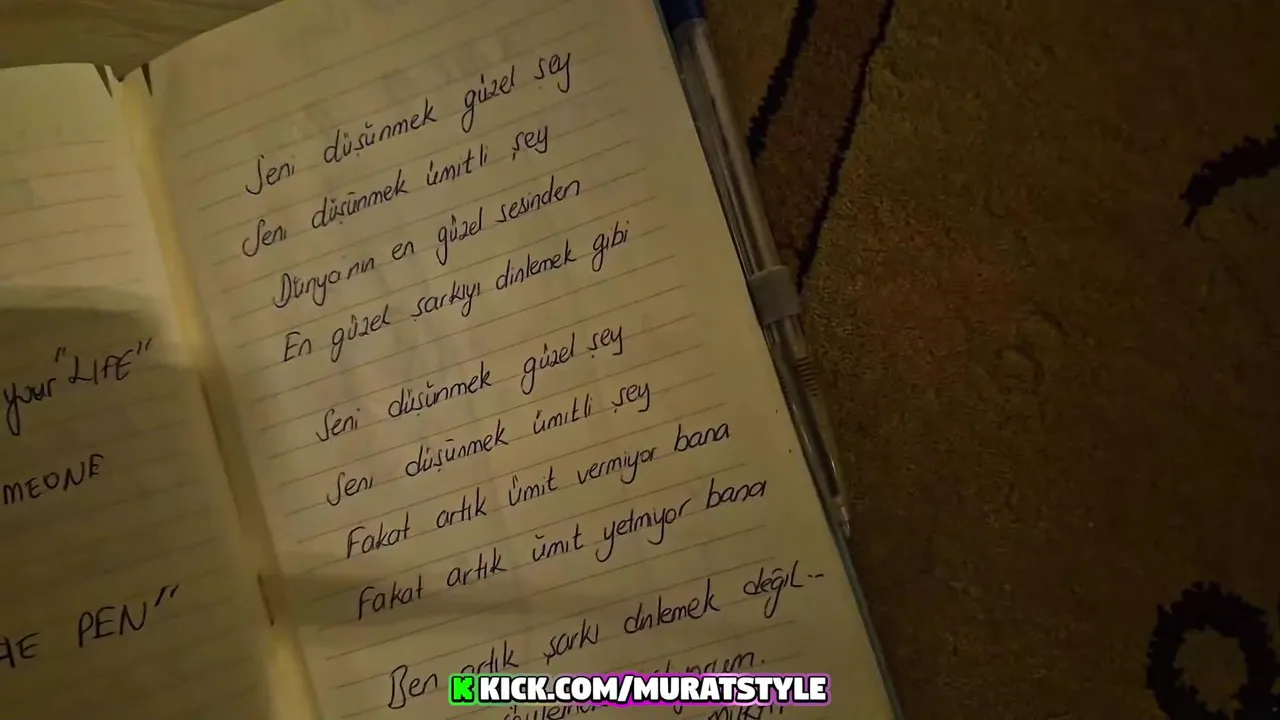 your "LIFE"
MEONE
PEN"
Seni düşünmek güzel şey
Seni düşünmek ümitli şey
Dünya'nın en güzel sesinden
En güzel şarkıyı dinlemek gibi
Seni düşünmek güzel şey
Seni düşünmek ümitli şey
Fakat artık ümit vermiyor bana
Fakat artık ümit yetmiyor bana
Ben artık şarkı dinlemek değil..
KICK.COM/MURATSTYLE